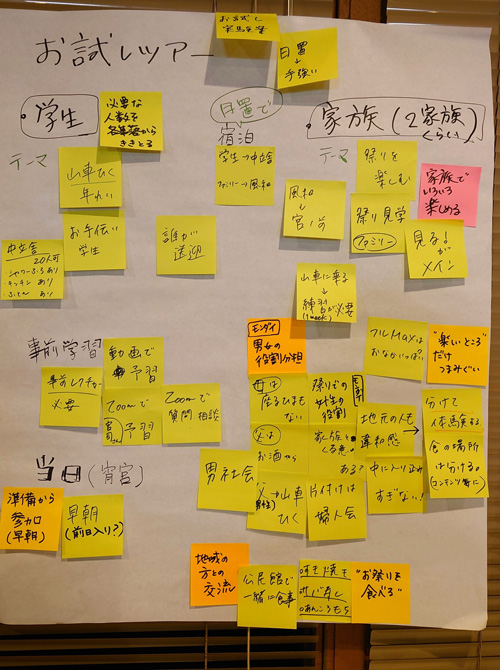 お試しツアー
お試し
日置
↓
手強い
学生
必要な
人数を
各集落から
ききとる
日置で
宿泊
学生→中立舎
ファミリー→風和
家族(2家族
くらい)
テーマ
山車ひく
年れい
お手伝い
学生
誰が
送迎
中立舎
20人可
・シャワーふろあり
・キッチンあり
・ふとんあり
テーマ
祭りを
楽しむ
家族で
いろいろ
楽しめる
風和
↓
宮ノ前
祭り見学
ファミリー
見る!
が
メイン
山車に乗る
↓
練習が必要
(1week)
事前学習
動画で
予習
事前レクチャー
必要
Zoomで
予習
Zoomで
質問相談
モンダイ
男女の
役割分担
フルMaxは
おなかいっぱい
"楽しいところ"
だけ
つまみぐい
母は
座るひまも
ない
祭りでの
女性の
役割
地元の人も
違和感
分けて
体験する
父は
お酒やら
食の場所
は分ける。
男社会
父→山車
ひく
片付けは
婦人会
中に入り込み
すぎない!
当日(宵宮)
準備から
参加
(早朝)
早朝
(前日入り?)
地域の
方との
交流
公民館で
一緒に食事
"お祭りを
食べる"